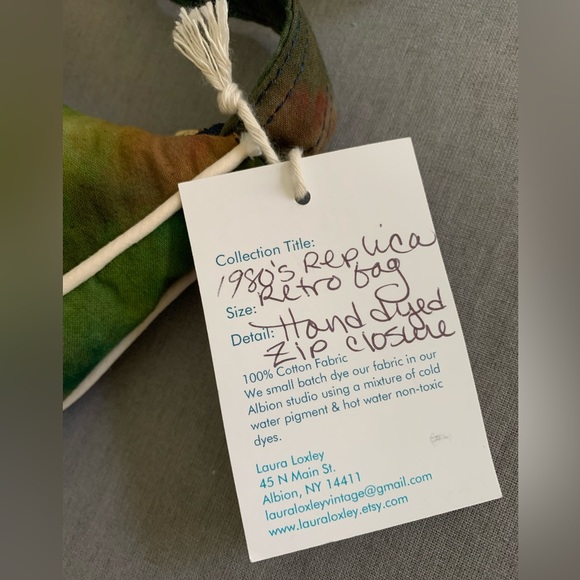 Collection Title:
1980's Replica
Retro bag
Size:
Detail: Hand dyed
Zip closure
100% Cotton Fabric
We small batch dye our fabric in our
Albion studio using a mixture of cold
water pigment & hot water non-toxic
dyes.
Laura Loxley
45 N Main St.
Albion, NY 14411
lauraloxleyvintage@gmail.com
www.lauraloxley.etsy.com